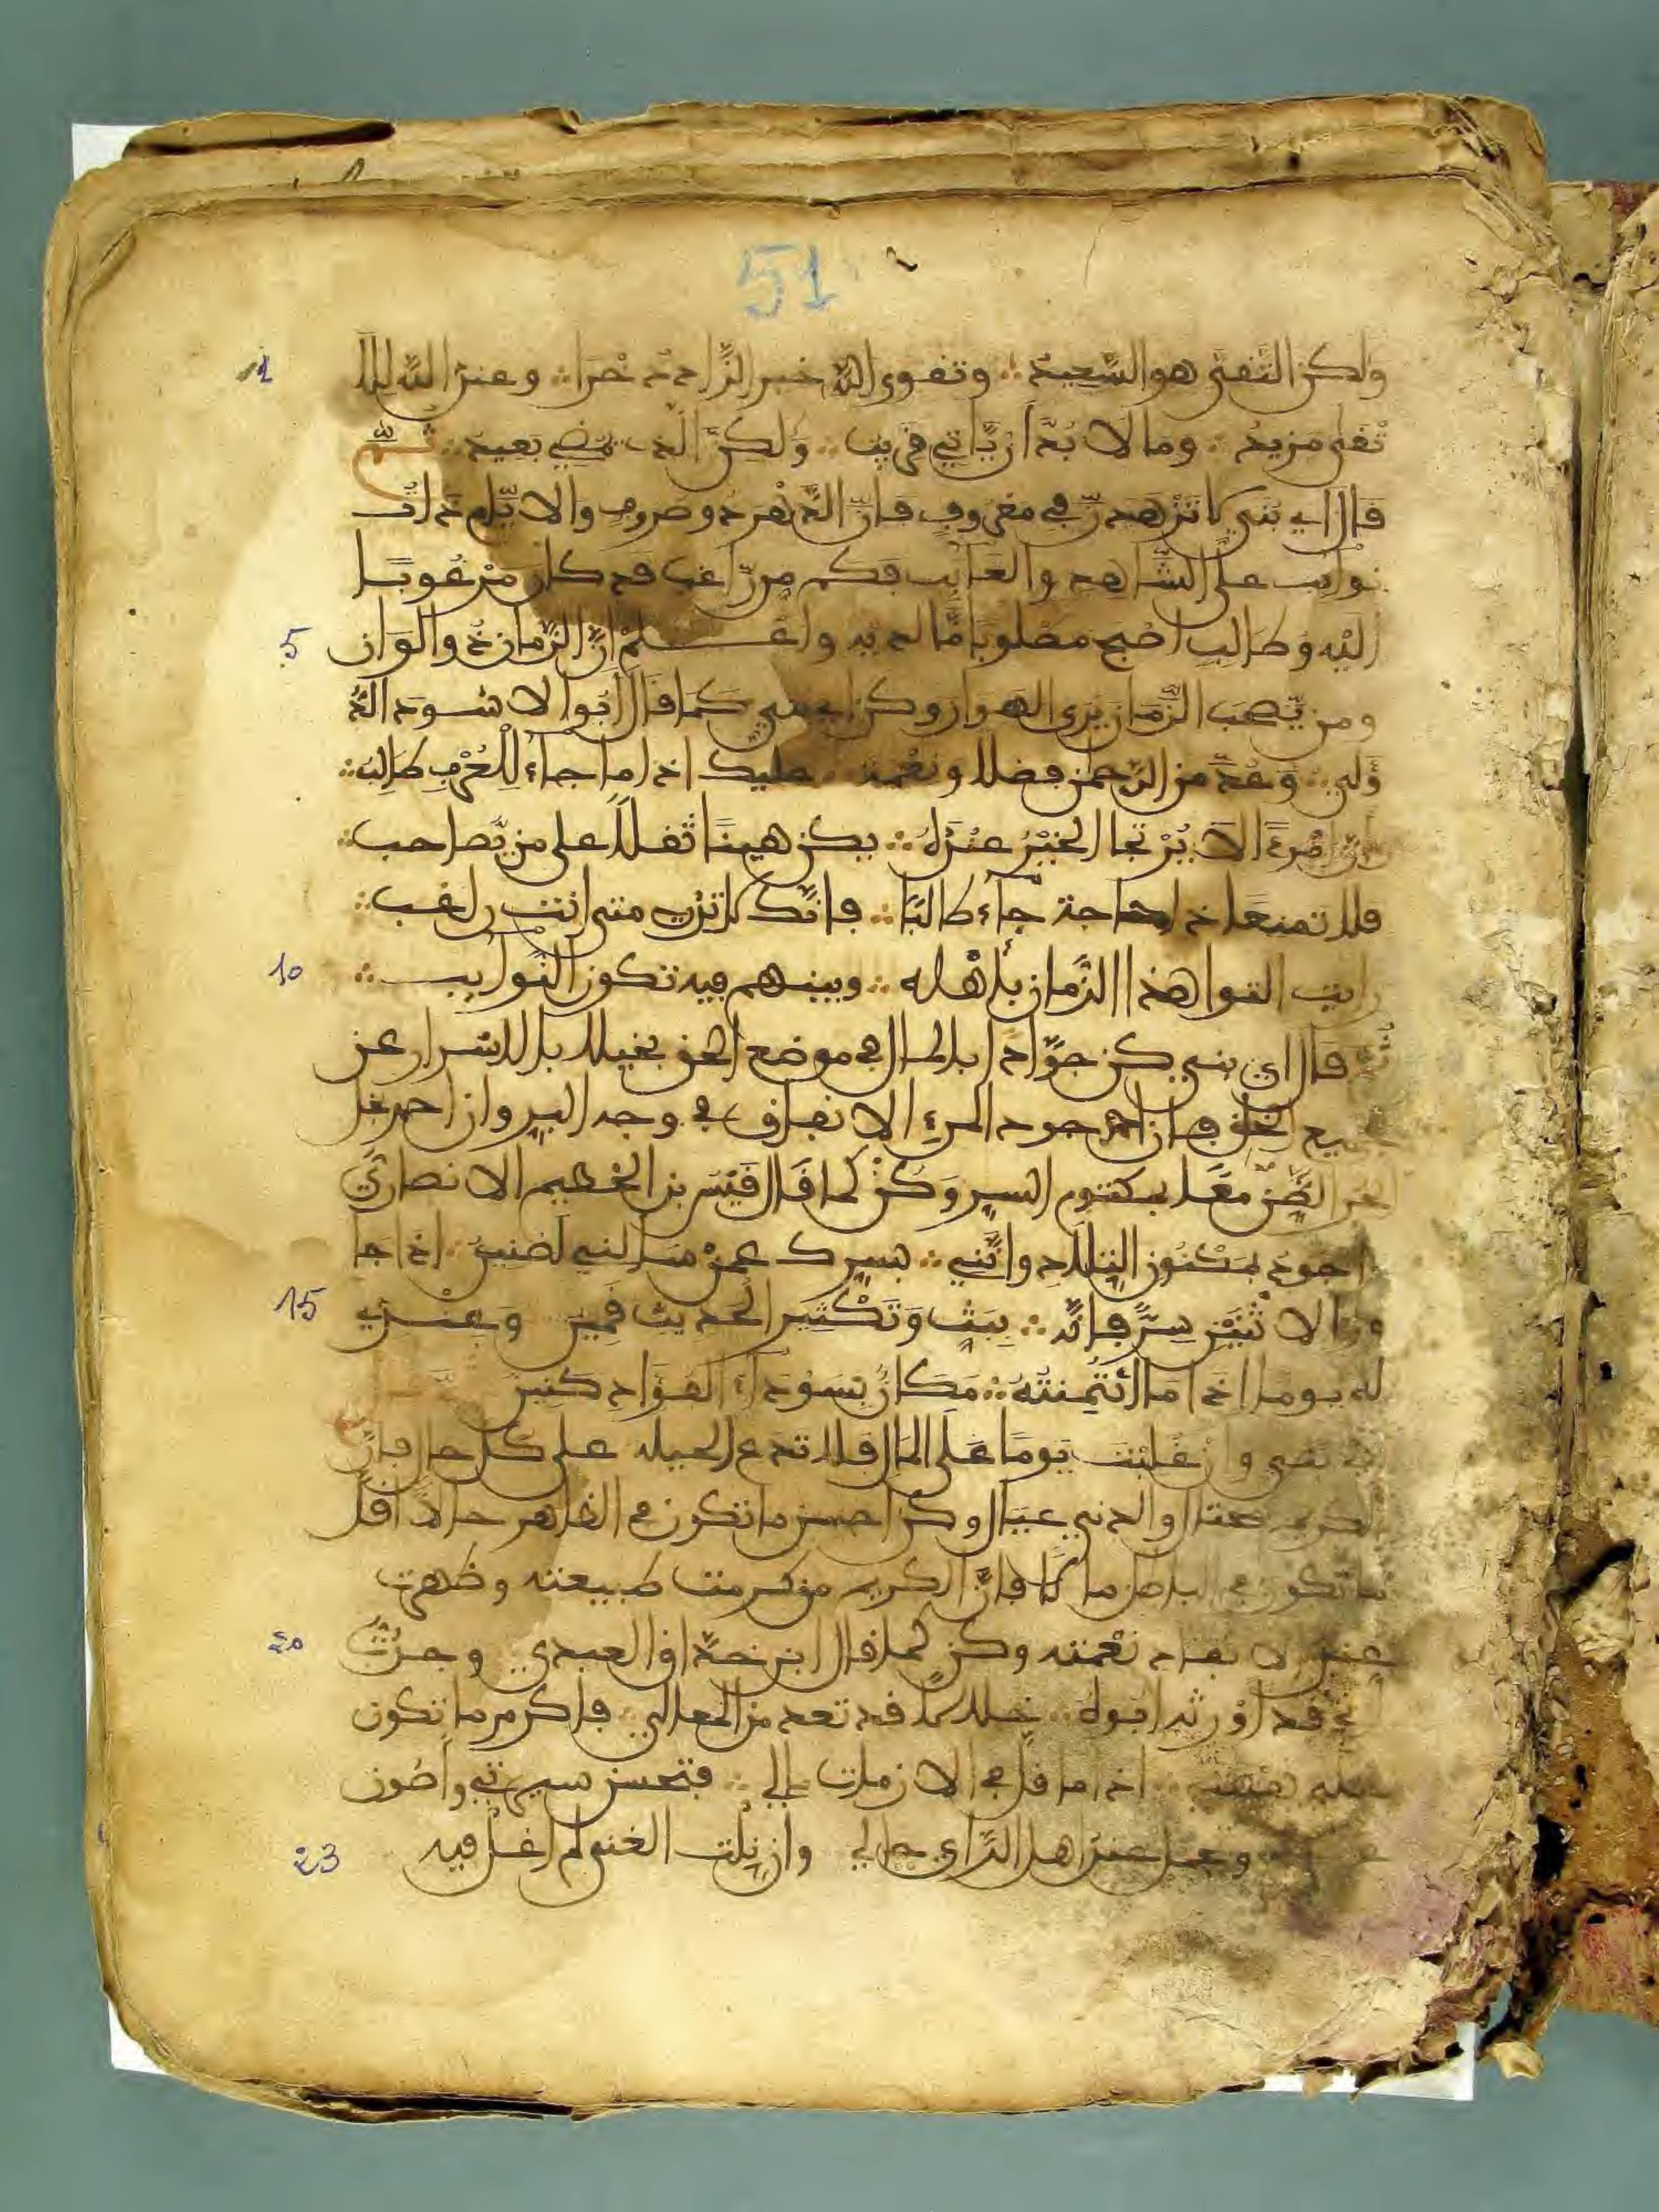 51
1
ولكن التقي هو السعيد ∴ وتقوى الله خير الزاد ذخرا ∴ وعند الله للا
تقى مزيد ∴ وما لا بد ان ياتي قريب ∴ ولكن الذي يمضي بعيد ∴ ثم
قال اي بني لا تزهدن في معروف فان الدهر ذو صروف والايام ذات
نوايب على الشاهد والغايب فكم من راغب قد كان مرغوبا
5
اليه وطالب اصبح مطلوبا ما لديه واعلم ان الزمان ذو الوان
ومن يصحب الزمان يرى الهوان وكن اي بني كما قال ابوا الاسود الد
ولي ∴ وعد من الرحمن فضلا ونعمة ∴ عليك اذا ما جاء للعرف طالب ∴
وان امرءا لا يرتجا الخير عنده ∴ يكن هينا ثقلا على من يصاحب ∴
فلا تمنعا ذا حاجة جاء طالبا ∴ فانك لا تدري متى انت راغب ∴
10
رايت التوا هذا الزمان باهله ∴ وبينهم فيه تكون النوايب ∴
ثم قال اي بني كن جوادا بالمال في موضع الحق بخيلا بالاسرار عن
جميع الخلق فان احمد جود المرء الانفاق في وجه البر وان احمد بخل
الحر الضن معا بمكتوم السر وكن كما قال قيس بن الخطيم الانصاري
اجود بمكنون التلاد وانني ∴ بسرك عمن سالني لضنين ∴ اذا جا
15
وز الاثنين سر فانه ∴ ببث وتكثير الحديث قمين وعندي
له يوما اذا ما ائتمنته ∴ مكان بسوداء الفؤاد كنين
اي بني وان غلبت يوما على المال فلا تدع الحيلة على كل حال فان
الكريم محتال والدني عيال وكن احسن ما تكون في الظاهر حالا اقل
ما تكون في الباطن مالا فان الكريم من كرمت طبيعته وظهرت
20
عند الانفاد نعمته وكن كما قال ابن خذاق العبدي وجدت
ابي قد اورثه ابوه ∴ خلالا قد تعد من المعالي ∴ فاكرم ما تكون
عليه نفسي ∴ اذا ما قل في الازمات مالي ∴ فتحسن سيرتي واصون
23
وجمل عند اهل الراي حالي وان نلت الغنى لم اغل فيه